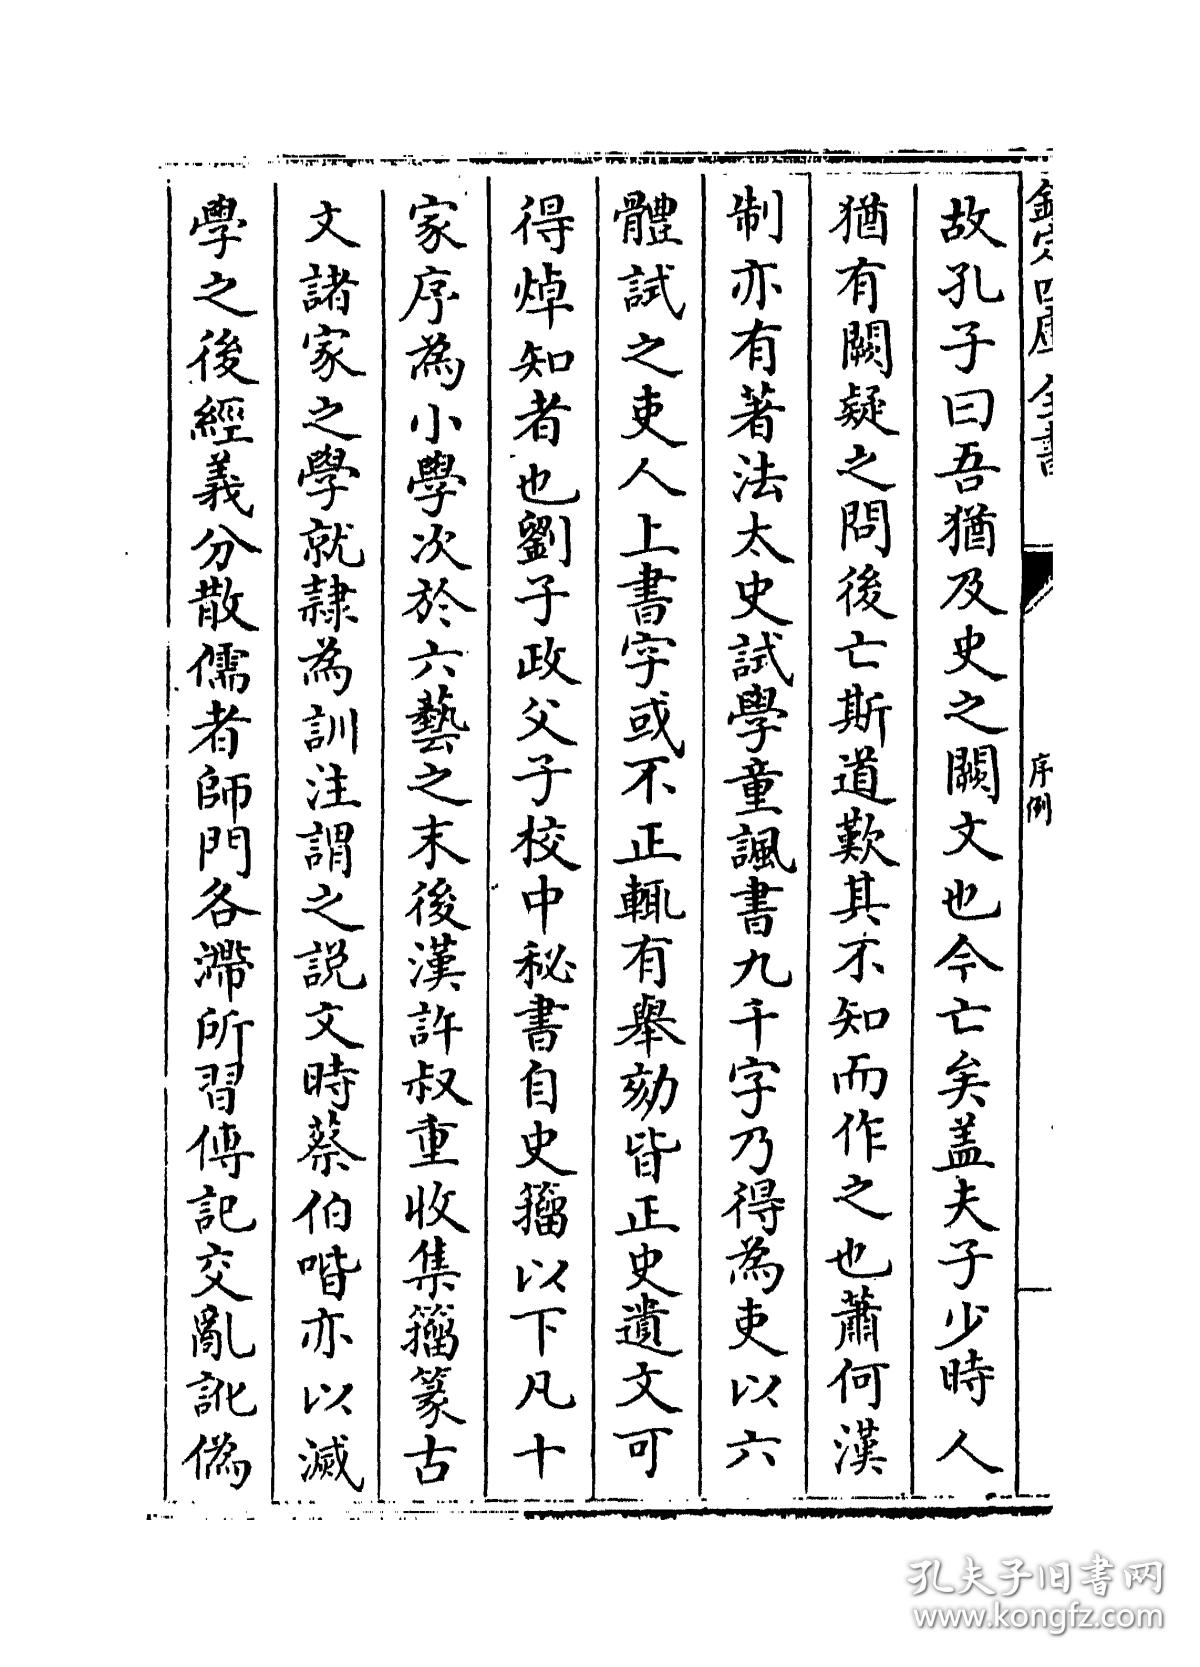 欽定四庫全書
序例
故孔子曰吾猶及史之闕文也今亡矣盖夫子少時人
猶有闕疑之問後亡斯道歎其不知而作之也蕭何漢
制亦有著法太史試學童諷書九千字乃得為吏以六
體試之吏人上書字或不正輒有舉劾皆正史遺文可
得焯知者也劉子政父子校中秘書自史籀以下凡十
家序為小學次於六藝之末後漢許叔重收集籀篆古
文諸家之學就隷為訓注謂之説文時蔡伯喈亦以滅
學之後經義分散儒者師門各滯所習傳記交亂訛偽
孔夫子旧书网
www.kongfz.com